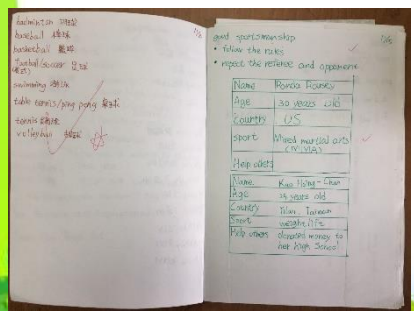 badminton 羽球
baseball 棒球
basketball 籃球
football/soccer 足球
swimming 游泳
table tennis/ping pong 桌球
tennis 網球
volleyball 排球
good sportsmanship
• follow the rules
• repect the referee and opponent
Name Ronda Rousey
Age 30 years old
Country US
sport Mixed martial arts
(MMA)
Help others
Name Kuo Hsing-Chun
Age 25 years old
Country Yilan, Taiwan
Sport weight lift
Help others donated money to
her High School